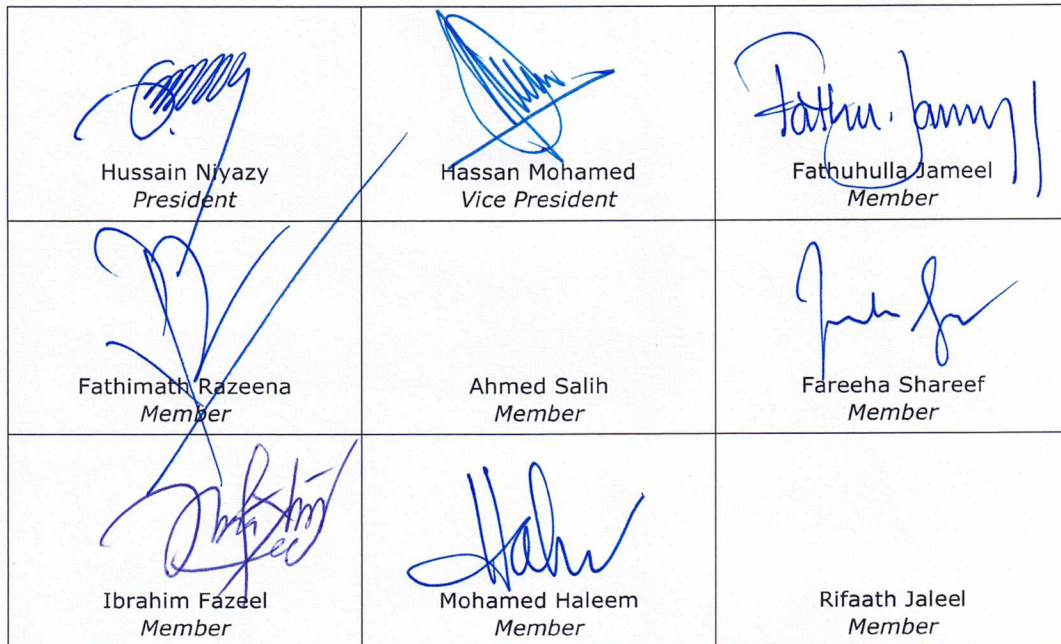 Fathu. Jameel
Hussain Niyazy
President
Hassan Mohamed
Vice President
Fathuhulla Jameel
Member
Fathimath Razeena
Member
Ahmed Salih
Member
Fareeha Shareef
Member
Ibrahim Fazeel
Member
Mohamed Haleem
Member
Rifaath Jaleel
Member